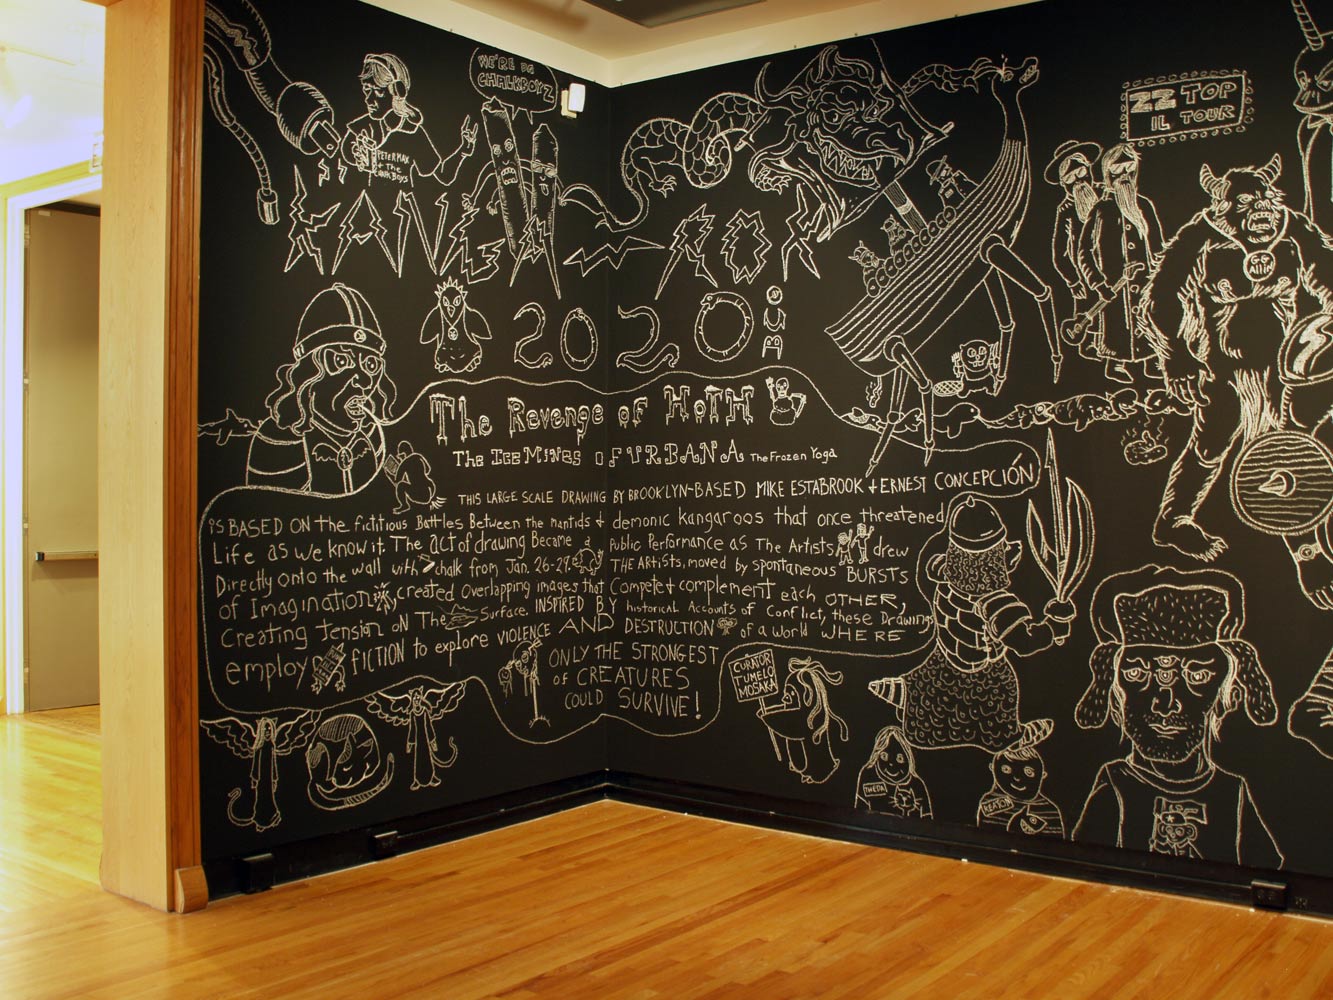 WE'RE DE
CHALKBOYZ
PETER MAX
+ The
CHALKBOYS
2020!
ZZ TOP
IL TOUR
GG
Allin
The Revenge of HOTH
The Ice Mines OF URBANA The Frozen Yoga
THIS LARGE SCALE DRAWING BY BROOKLYN-BASED MIKE ESTABROOK + ERNEST CONCEPCIÓN
IS BASED ON the fictitious Battles Between the mantids + demonic kangaroos that once threatened
Life as we know it. The act of drawing Became a Public Performance as The Artists drew
Directly onto the wall with chalk from Jan. 26-29. THE Artists, moved by spontaneous BURSTS
of Imagination, created overlapping images that Compete + complement each OTHER,
Creating tension on The Surface. INSPIRED BY historical Accounts of Conflict, these Drawings
employ FICTION to explore VIOLENCE AND DESTRUCTION of a world WHERE
ONLY THE STRONGEST
of CREATURES
COULD SURVIVE!
CURATOR
TUMELO
MOSAKA
THEDA
KEATON